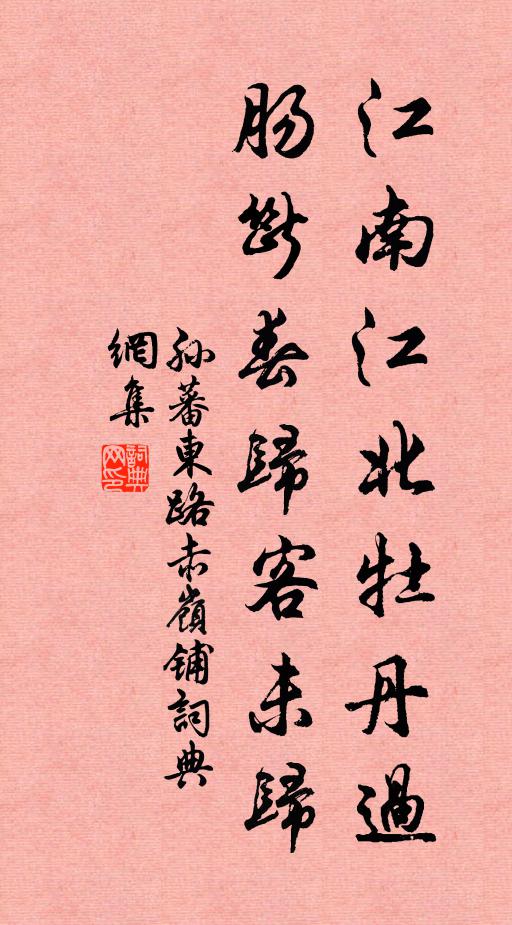 江南江北牡丹過
腸斷春歸客未歸
孫蕃東路赤嶺鋪詞典
網集
詞典網印